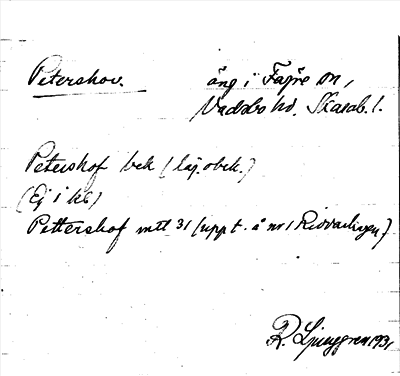 Petershov. äng i Fagre sn,
Vadsbo hd. Skarab. l.
Petershof bek (läg. obek.)
(Ej i kb)
Pettershof mtl 31 (upp t. å nr 1
R. Ljunggren 1931